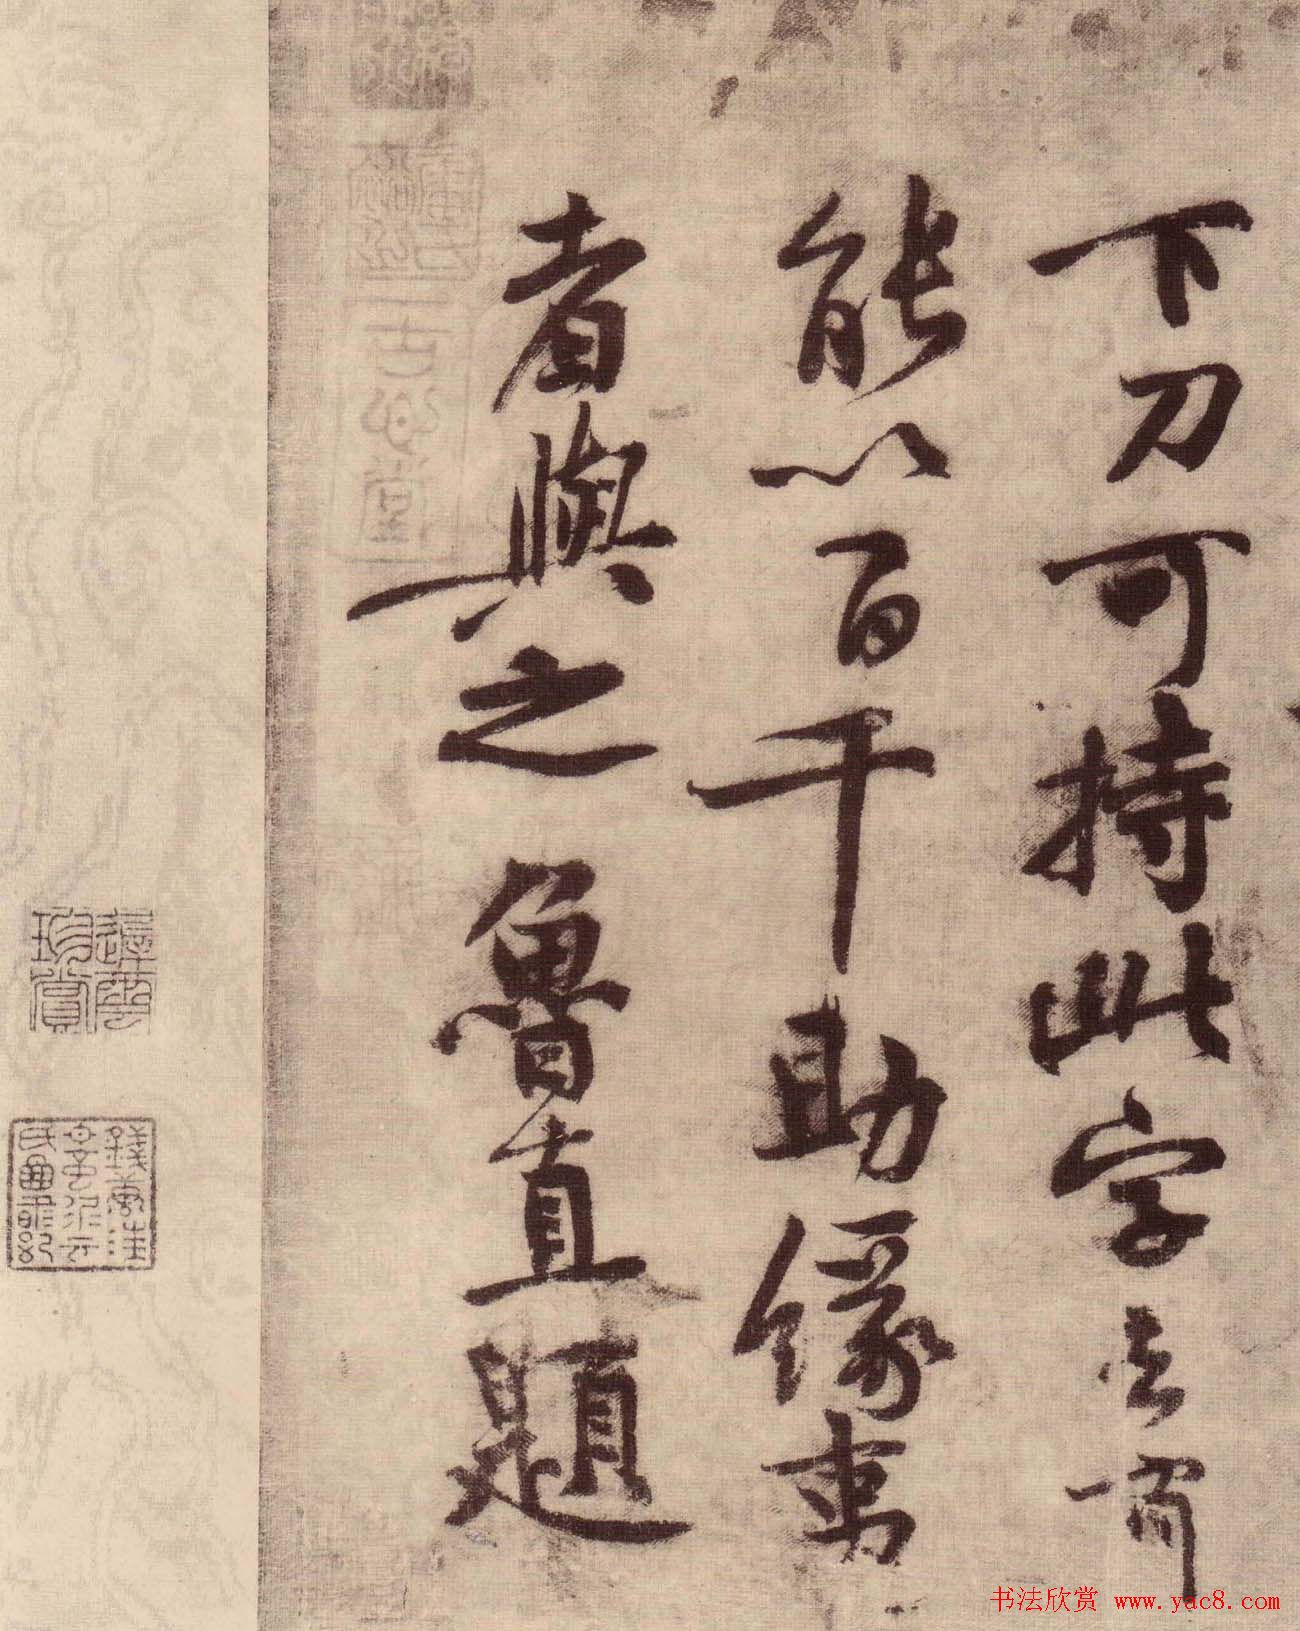 下刀可持此字去
能以百千助緣事
者與之 魯直題
珍賞
书法欣赏 www.yac8.com